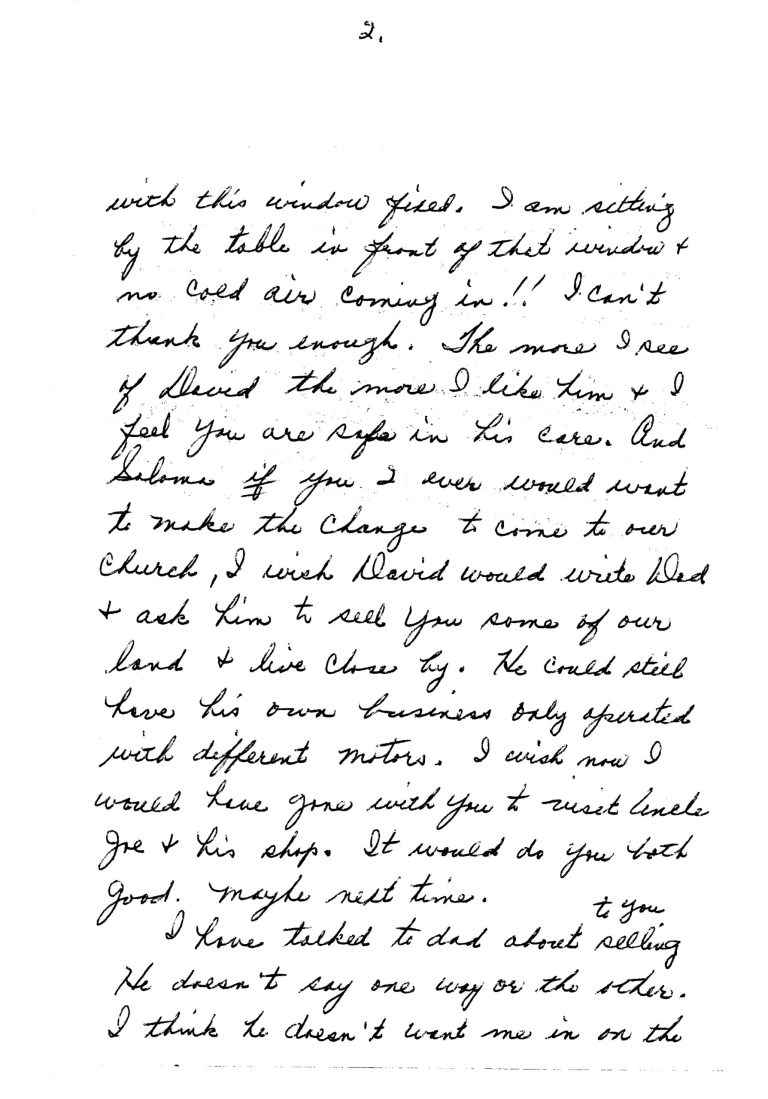 2.
with this window fixed. I am sitting
by the table in front of that window +
no cold air coming in!! I can't
thank you enough. The more I see
of David the more I like him + I
feel you are safe in his care. And
Saloma if you 2 ever would want
to make the change to come to our
church, I wish David would write Dad
+ ask him to sell you some of our
land + live close by. He could still
have his own business only operated
with different motors. I wish now I
would have gone with you to visit Uncle
Joe + his shop. It would do you both
good. Maybe next time.
to you
I have talked to dad about selling
He doesn't say one way or the other.
I think he doesn't want me in on the